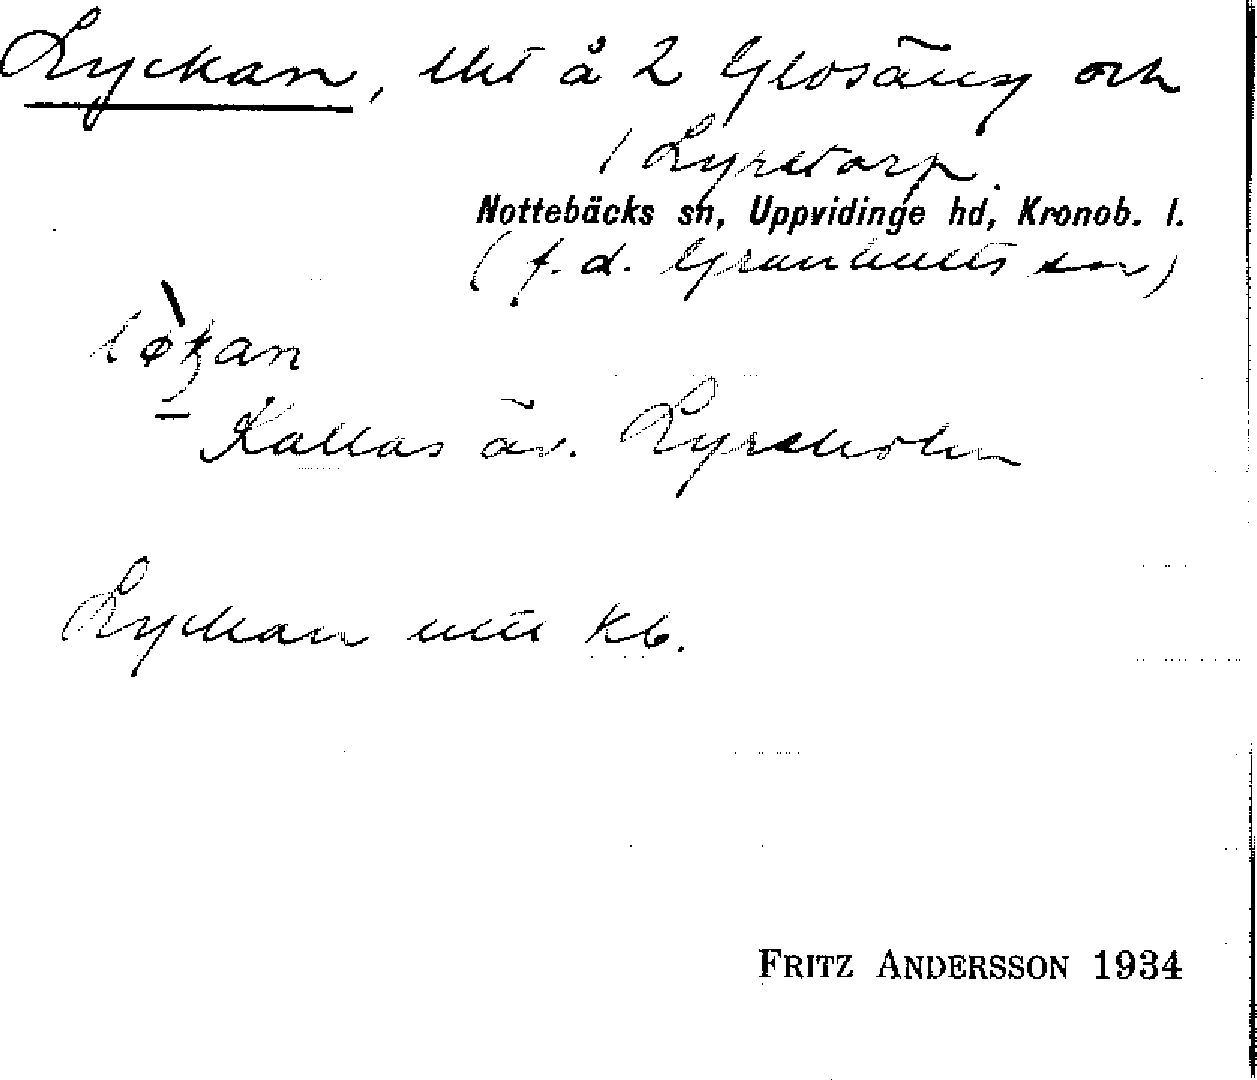 Lyckan, lht å 2 Glosäng och
1 Lyrstorp.
Nottebäcks sn, Uppvidinge hd, Kronob. l.
(f. d. Granhults sn)
Kallas äv. Lyrsholm
Lyckan kb.
FRITZ ANDERSSON 1934